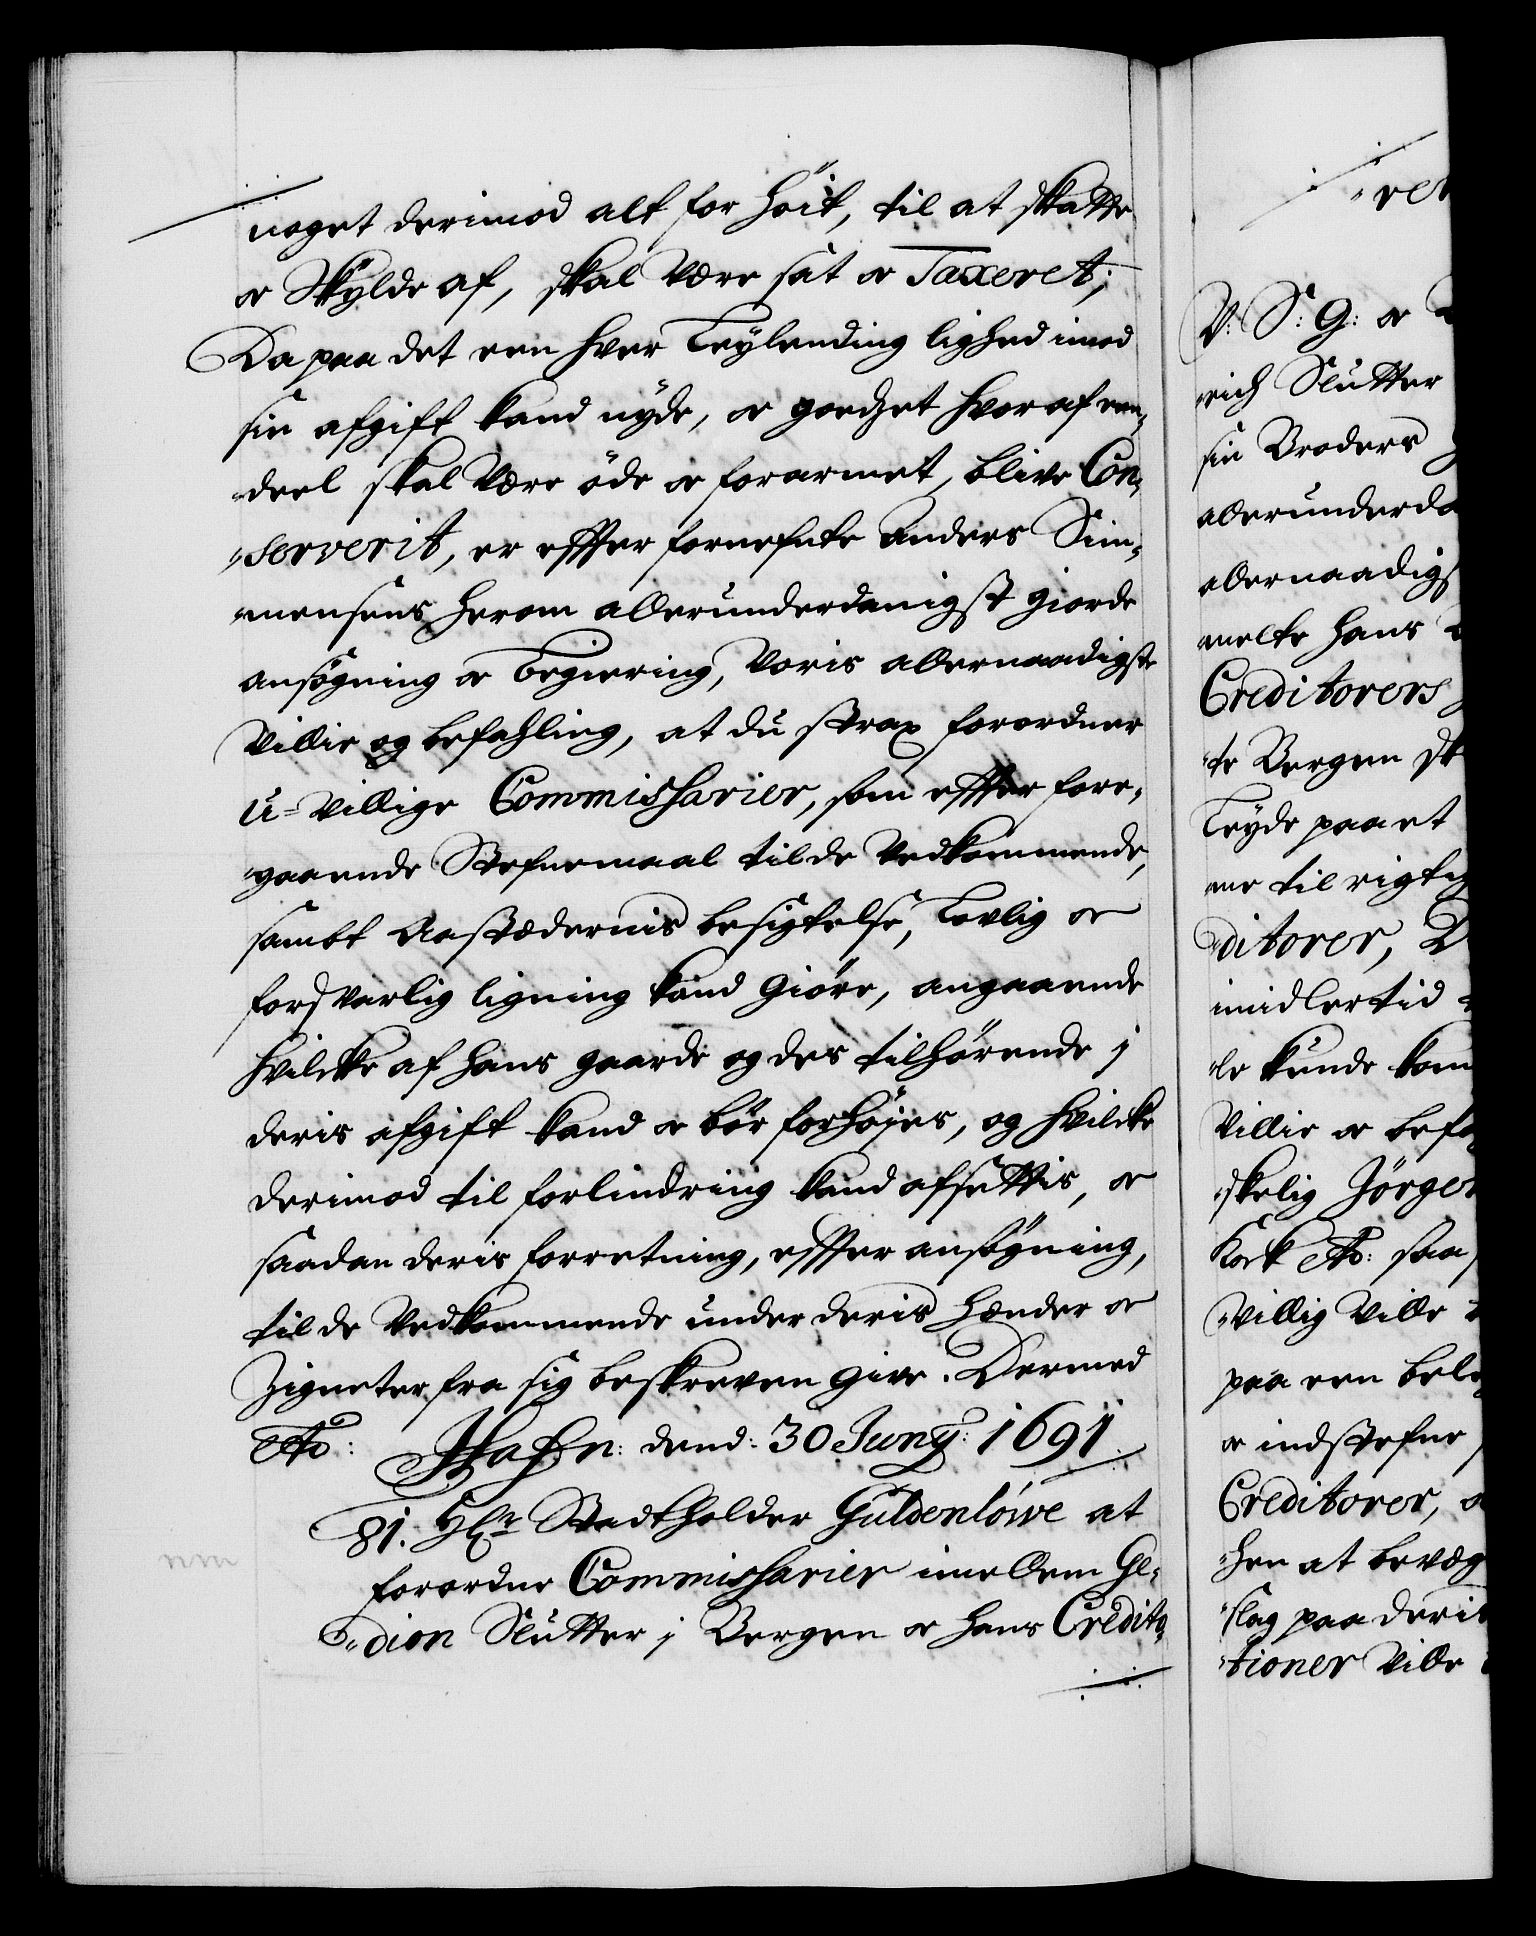 noget derimod alt for höit, til at skatte
oc Skylde af, skal være sat oc Taxeret;
Da paa det een hver Leylending lighed imod
sin afgift kand nyde, oc godzet hvoraf een„
„deel skal være öde oc forarmet, blive Con„
„serverit, er effter fornefnte Anders Sim„
„mensens herom allerunderdanigst giorde
ansögning oc begiering, Voris allernaadigste
Villie og befahling, at du strax forordner
u-villige Commissarier, som effter fore„
„gaaende Stefnemaal til de Vedkommende,
sambt Aastædernis besigtelse, Lovlig oc
forsvarlig ligning kand giöre, angaaende
hvilcke af hans gaarde og des tilhörende j
deris afgift kand oc bör forhöjes, og hvilcke
derimod til forlindring kand afsettis, oc
saadan deris forretning, effter ansögning,
til de Vedkommende under deris Hænder oc
Zigneter fra sig beskreven give. Dermed
etc: Hafn: dend: 30 Junÿ: 1691.
81. HEr Stadtholder Güldenlöwe at
forordne Commissarier imellem Ge„
„dion Slutter j Bergen oc hans Credito„
„rer
V: S: G: oc
„rich Slutter
sin Broders
allerunderda
allernaadigs
„melte hans
Creditorers
te Bergen sk
Leyde paa et
„me til rigtig
„ditorer, D
imidlertid
„le kunde kom
Villie oc befa
„skelig Jörgen
Kock etc: saa
„villig Ville
paa een bele
oc indstefne
Creditorer, o
„hen at bevæg
„slag paa deris
„tioner Ville